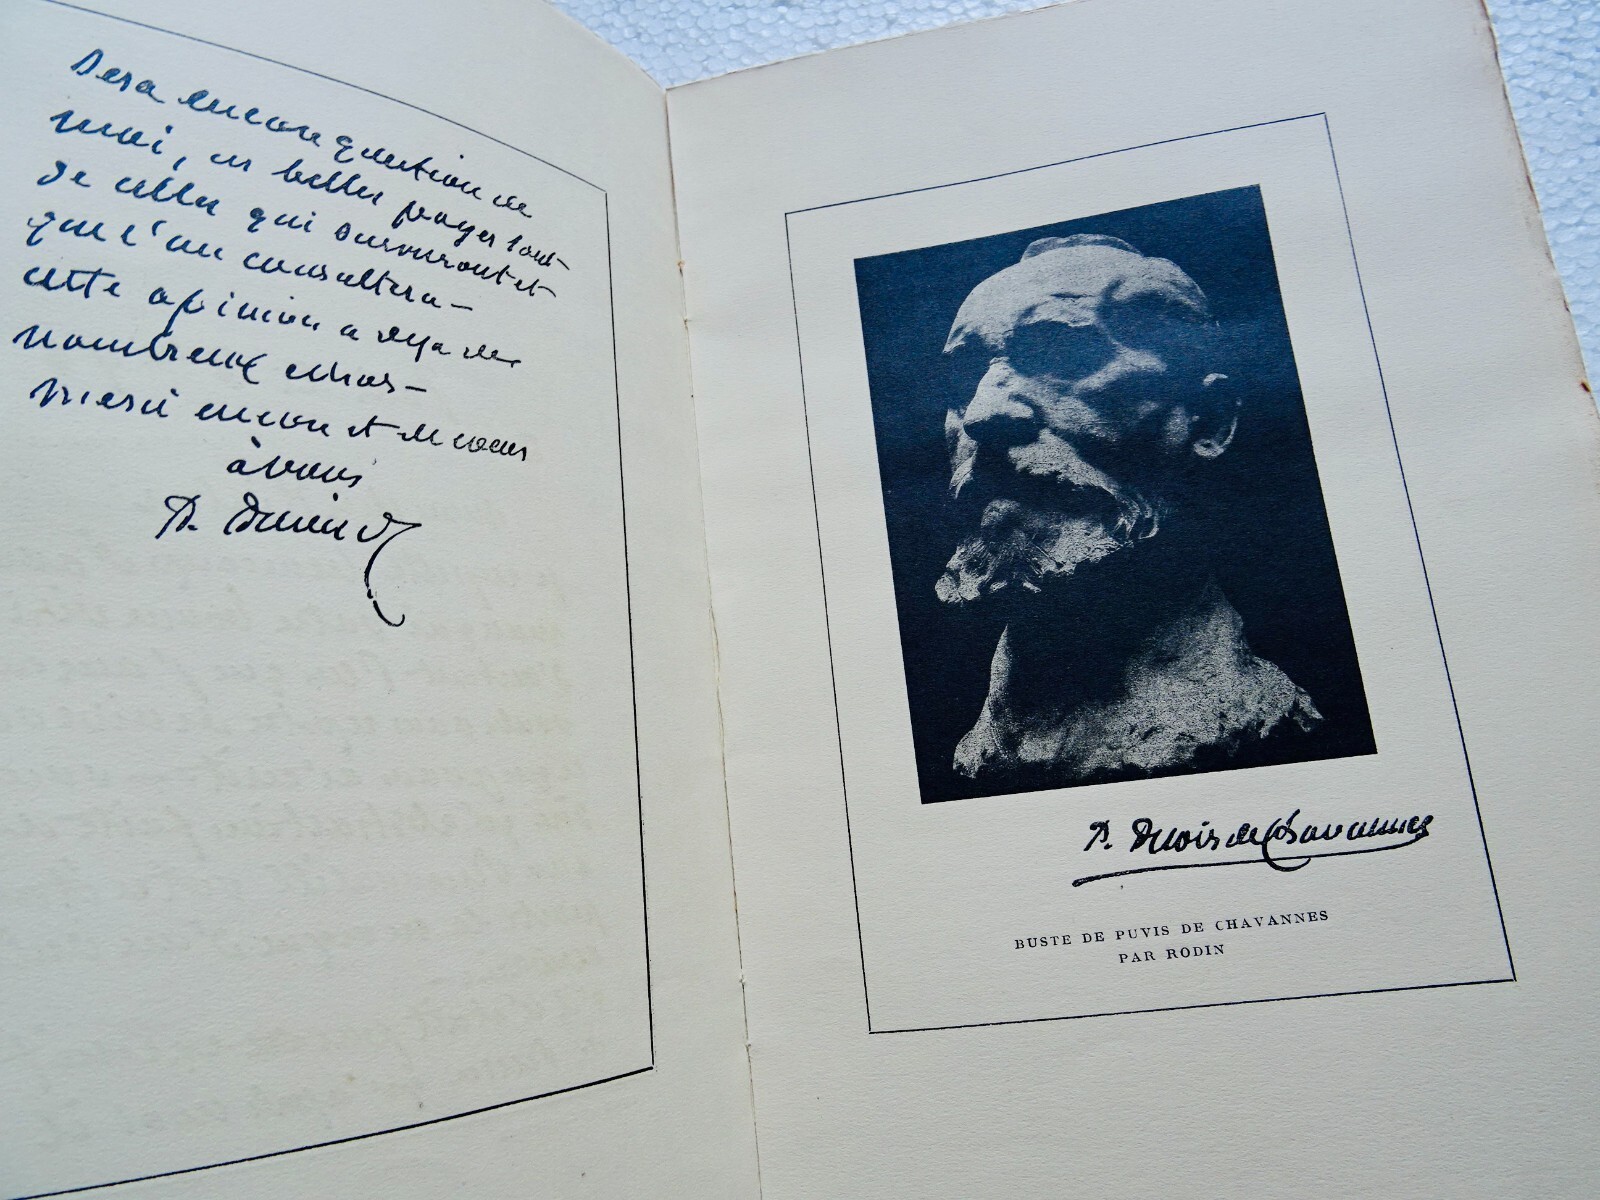 Sera encore question de
moi, ces belles pages sont
de celles qui survivront et
que l'on consultera –
cette opinion a déjà des
nombreux échos –
merci encore et de cœur
à vous
P. Puvis
P. Puvis de Chavannes
BUSTE DE PUVIS DE CHAVANNES
PAR RODIN